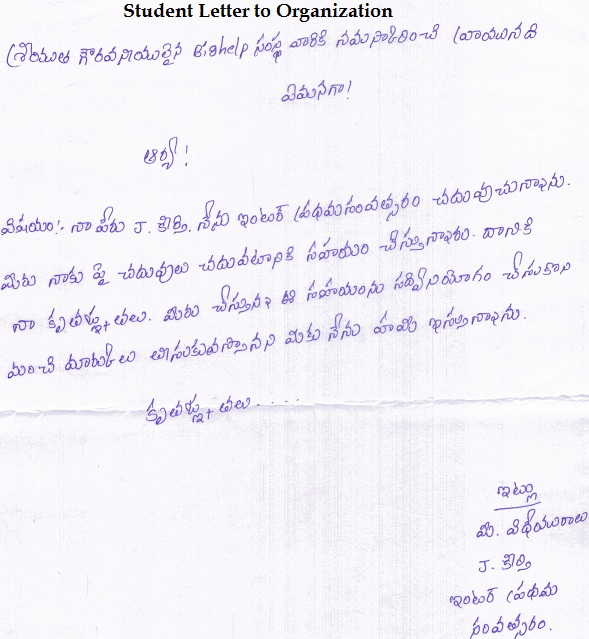 Student Letter to Organization
శ్రీయుత గౌరవనీయులైన Bighelp సంస్థ వారికి నమస్కరించి వ్రాయునది
ఏమనగా!
ఆర్య!
విషయం:- నా పేరు J. కీర్తి. నేను ఇంటర్ ప్రథమ సంవత్సరం చదువుచున్నాను.
మీరు నాకు పై చదువులు చదువటానికి సహాయం చేస్తున్నారు. దానికి
నా కృతజ్ఞతలు. మీరు చేస్తున్న ఈ సహాయంను సద్వినియోగం చేసుకొని
మంచి మార్కులు తీసుకువస్తానని మీకు నేను హామి ఇస్తున్నాను.
కృతజ్ఞతలు.....
ఇట్లు
మీ విధేయురాలు
J. కీర్తి
ఇంటర్ ప్రథమ
సంవత్సరం.